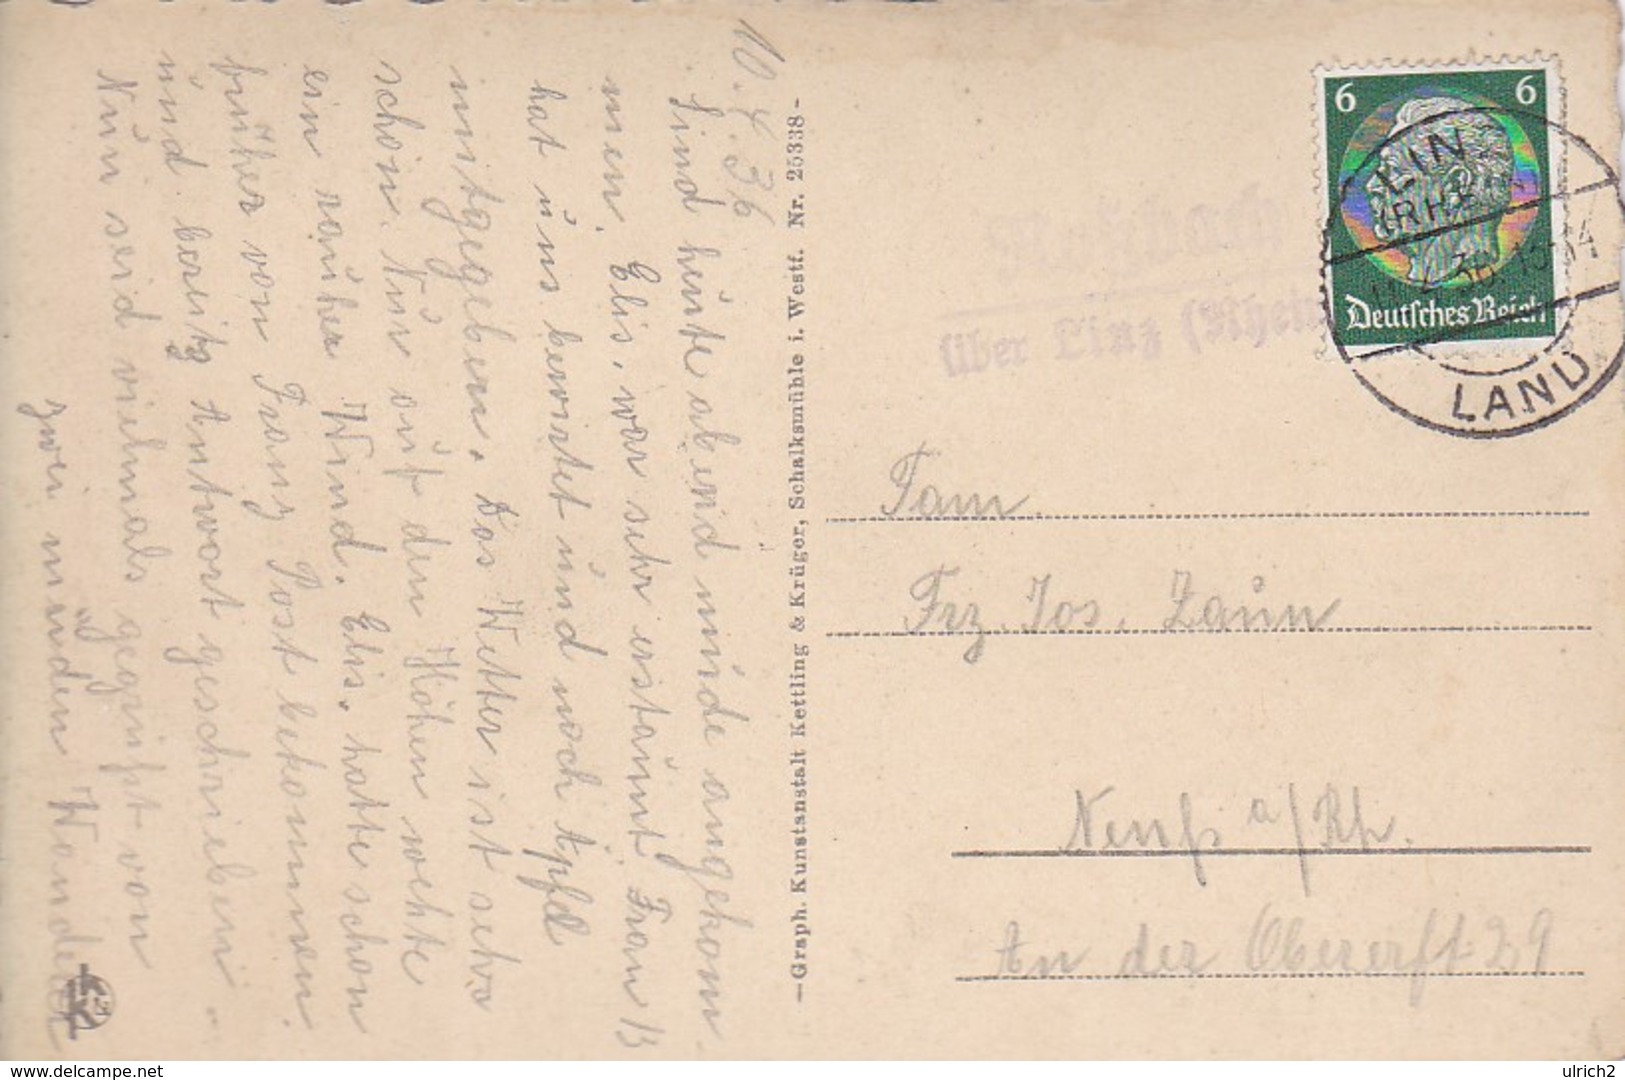 10.4.36
Sind heute abend müde angekom-
men. Elis. war sehr erstaunt. Frau B
hat uns bewirtet und noch Äpfel
mitgegeben. Das Wetter ist sehr
schön. Nur auf den Höhen wehte
ein rauher Wind. Elis. hatte schon
früher von Franz Post bekommen.
und bereits Antwort geschrieben.
Nun seid vielmals gegrüßt von
zwei müden Wanderer
—Graph. Kunstanstalt Kettling & Krüger, Schalksmühle i. Westf. Nr. 25338—
6 6
Deutsches Reich
LINZ
(RHEIN)
LAND
über Linz (Rhein
Fam.
Frz. Jos. Zaun
Neuß a/Rh.
An der Obererft 29
delcampe.net
ulrich2